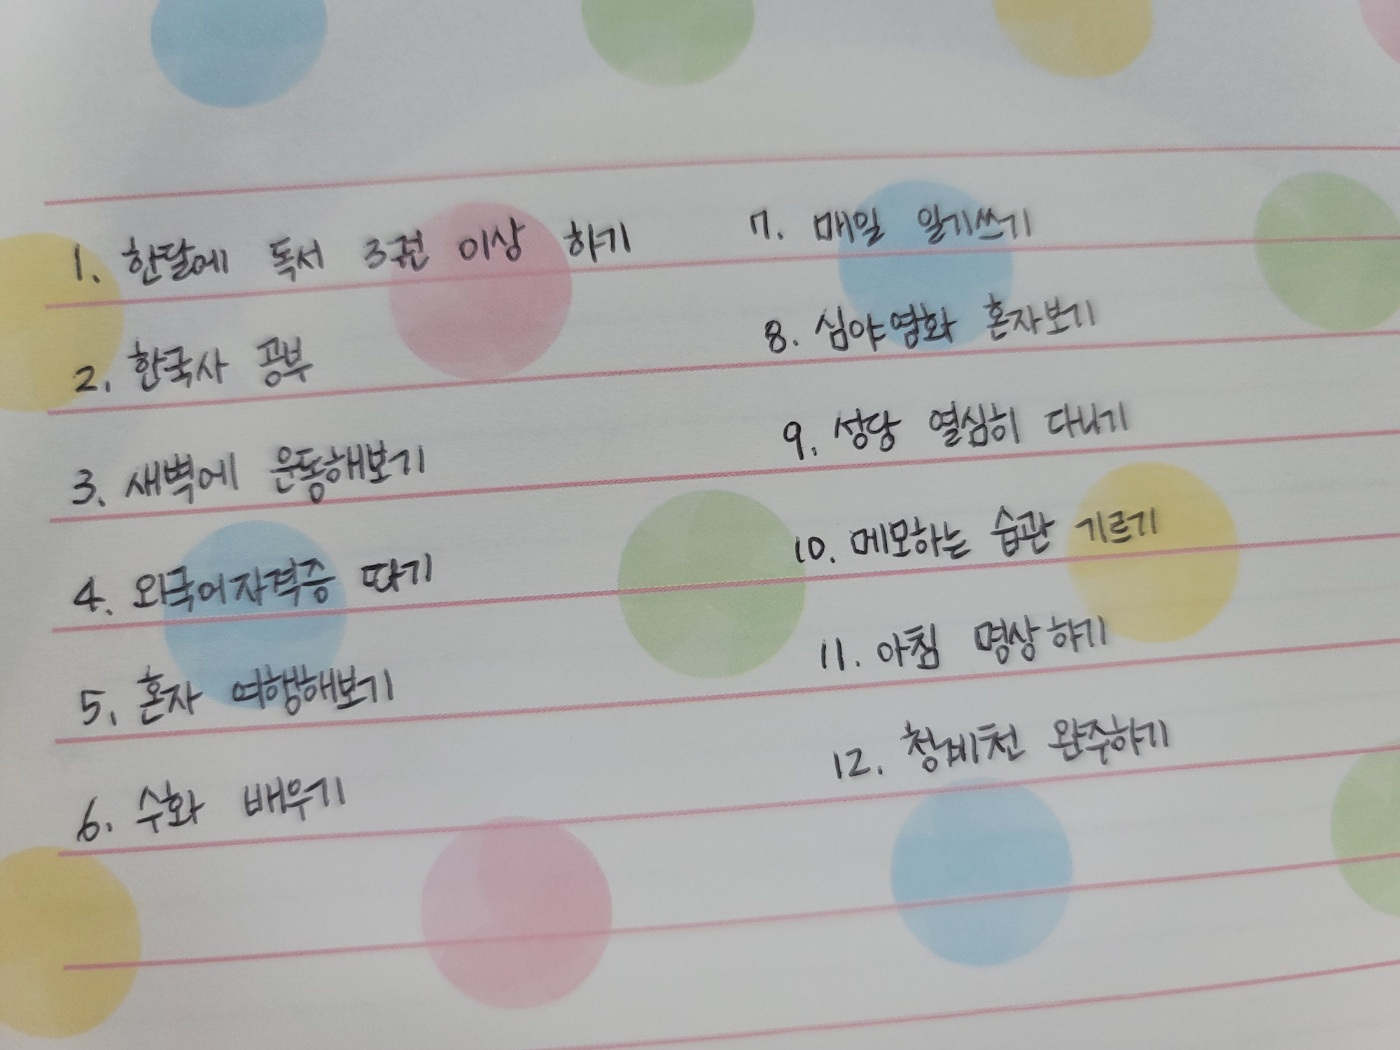 1. 한달에 독서 3권 이상 하기
2. 한국사 공부
3. 새벽에 운동해보기
4. 외국어자격증 따기
5. 혼자 여행해보기
6. 수화 배우기
7. 매일 일기쓰기
8. 심야영화 혼자보기
9. 성당 열심히 다니기
10. 메모하는 습관 기르기
11. 아침 명상하기
12. 청계천 완주하기